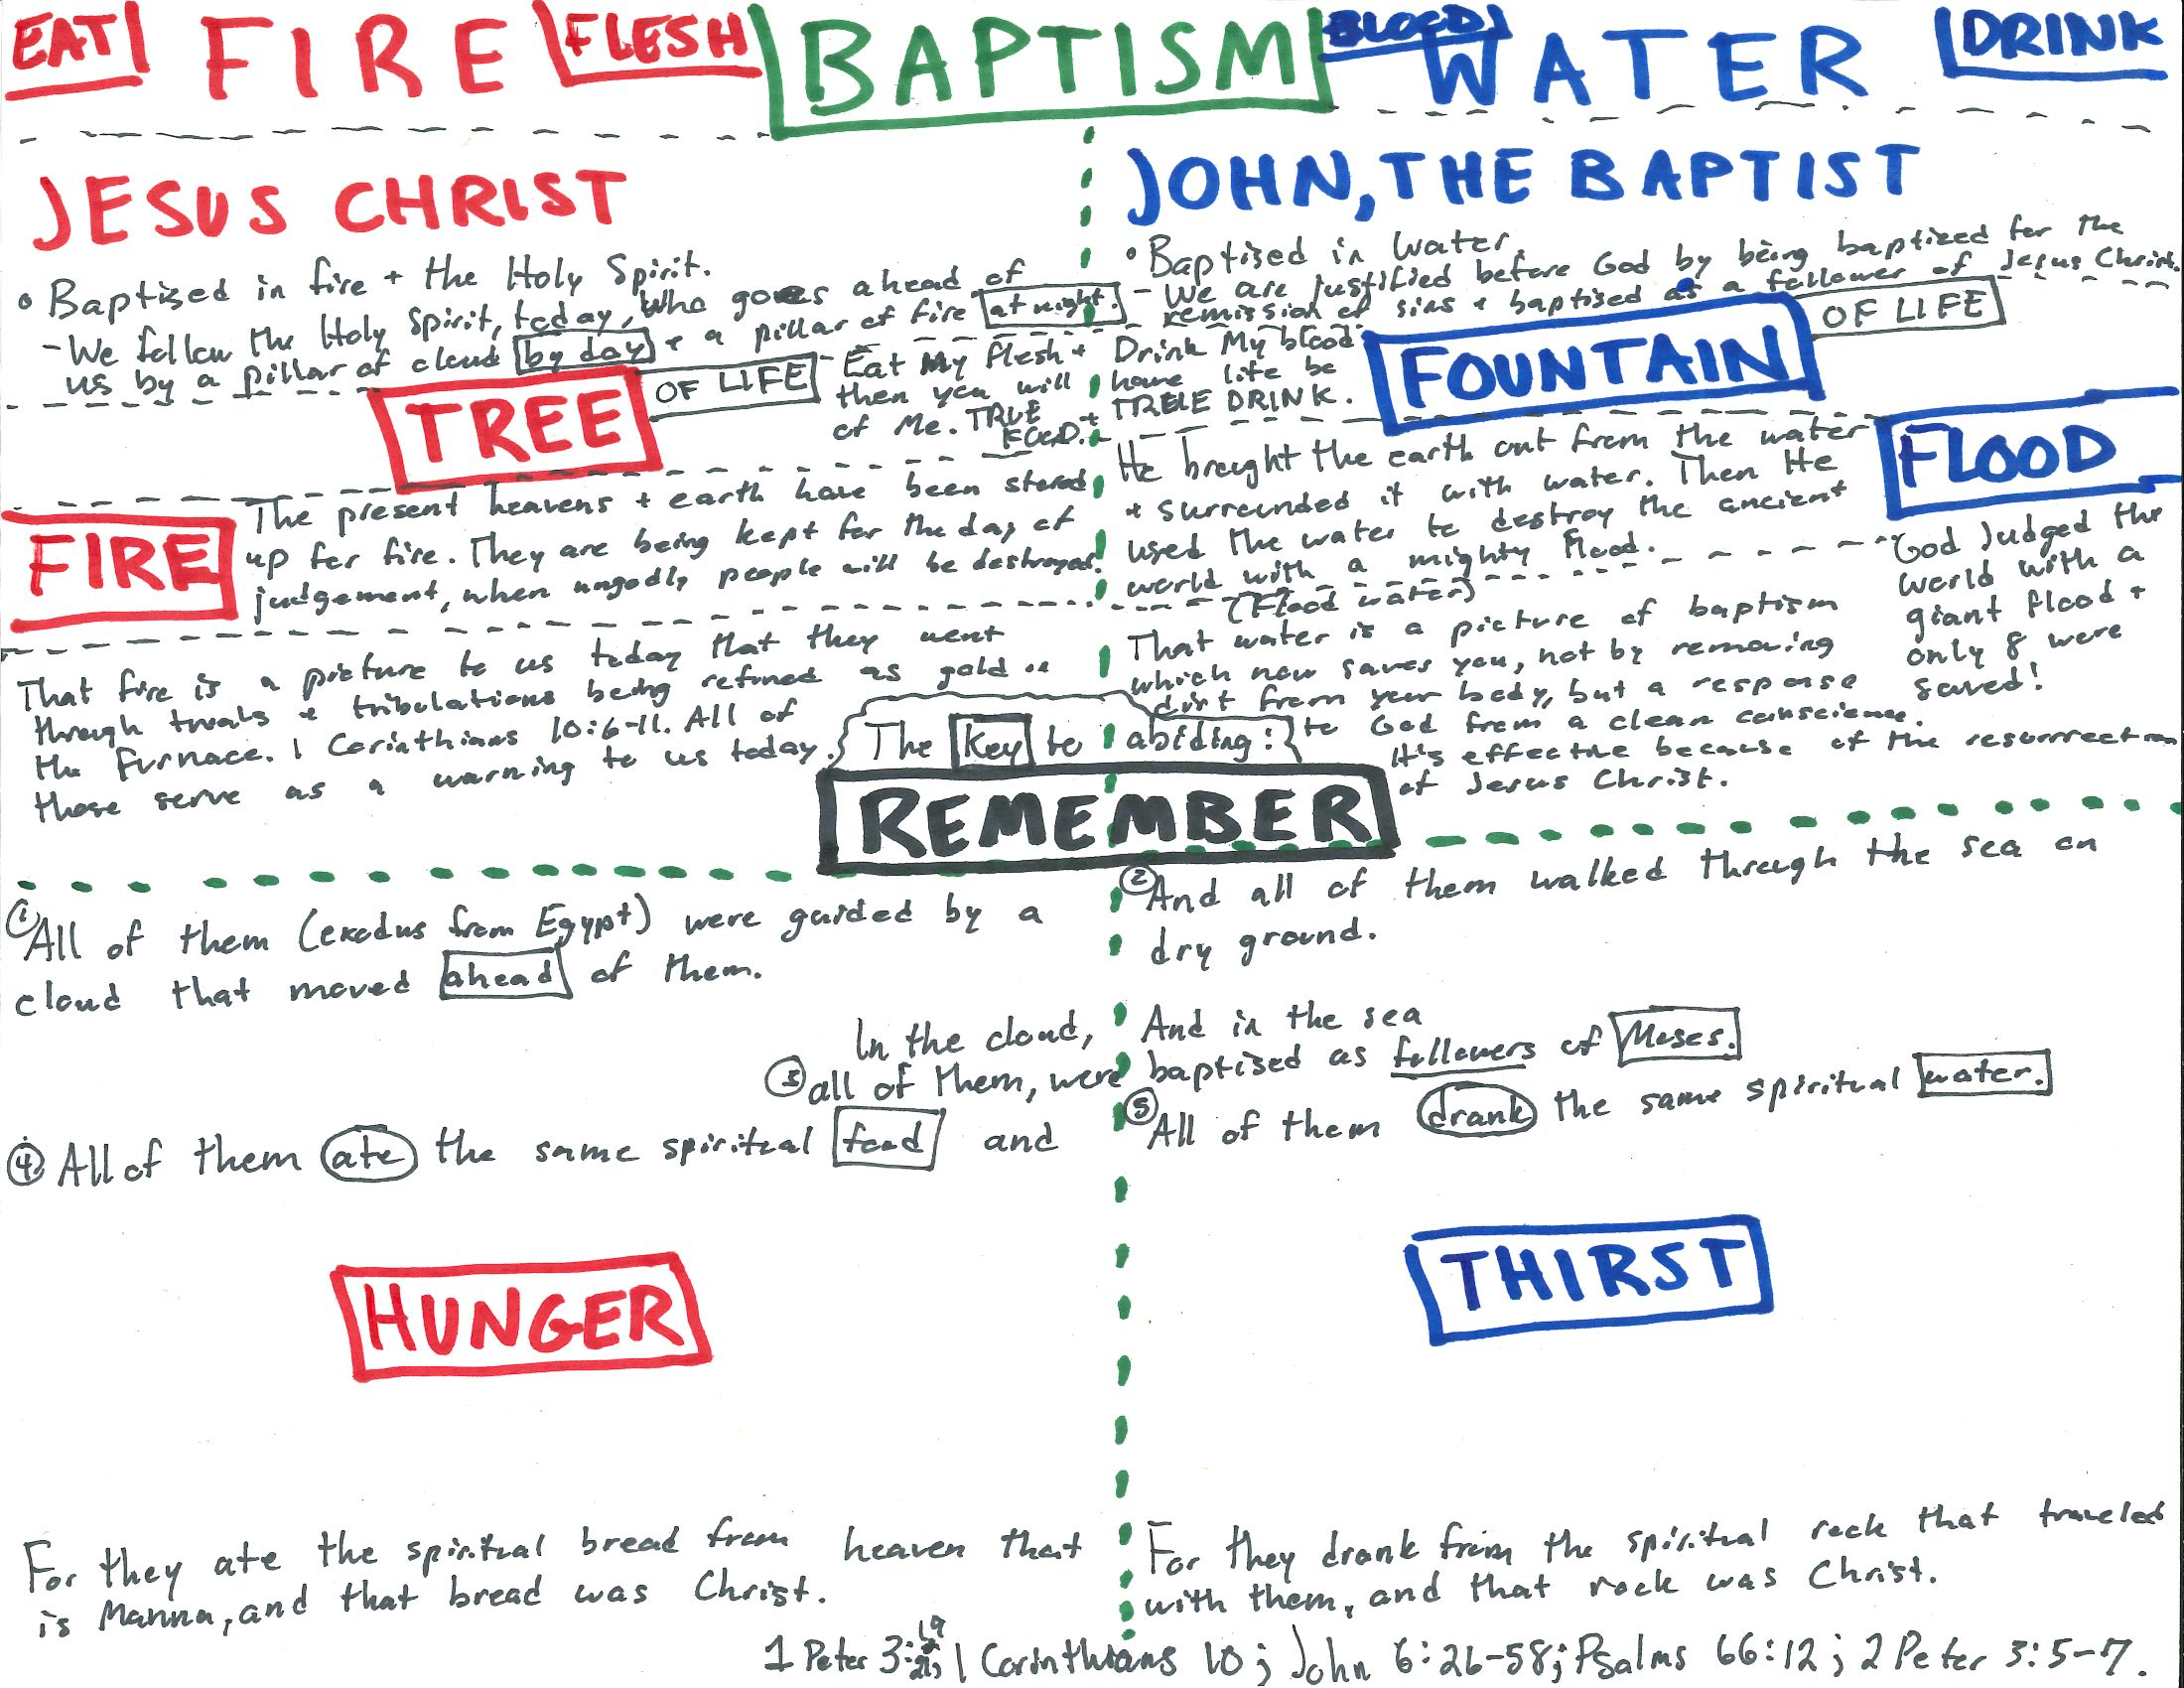 EAT FIRE FLESH BAPTISM BLOOD WATER DRINK
JESUS CHRIST
• Baptised in fire + the Holy Spirit.
- We follow the Holy Spirit, today, Who goes ahead of
us by a pillar of cloud by day + a pillar of fire at night.
JOHN, THE BAPTIST
• Baptised in Water.
- We are justified before God by being baptized for the
remission of sins + baptised as a follower of Jesus Christ.
TREE OF LIFE
- Eat My Flesh + Drink My blood
then you will have life be
of Me. TRUE FOOD. + TRUE DRINK.
FOUNTAIN OF LIFE
FIRE
The present heavens + earth have been stored
up for fire. They are being kept for the day of
judgement, when ungodly people will be destroyed!
He brought the earth out from the water
+ surrounded it with water. Then He
used the water to destroy the ancient
world with a mighty flood.
FLOOD
God judged the
world with a
giant flood +
only 8 were
saved!
That fire is a picture to us today that they went
through trials + tribulations being refined as gold in
the furnace. 1 Corinthians 10:6-11. All of
these serve as a warning to us today.
(Flood water)
That water is a picture of baptism
which now saves you, not by removing
dirt from your body, but a response
to God from a clean conscience.
It's effective because of the resurrection
of Jesus Christ.
The Key to abiding:
REMEMBER
① All of them (exodus from Egypt) were guided by a
cloud that moved ahead of them.
② And all of them walked through the sea on
dry ground.
In the cloud, And in the sea
③ all of them, were baptised as followers of Moses.
④ All of them ate the same spiritual food and
⑤ All of them drank the same spiritual water.
HUNGER
THIRST
For they ate the spiritual bread from heaven that
is Manna, and that bread was Christ.
For they drank from the spiritual rock that traveled
with them, and that rock was Christ.
1 Peter 3:19 21; 1 Corinthians 10; John 6:26-58; Psalms 66:12; 2 Peter 3:5-7.